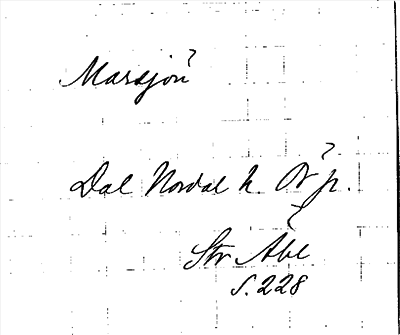 Marsjön?
Dal Nordal h. Ör? p.
Str Åbl
s. 228